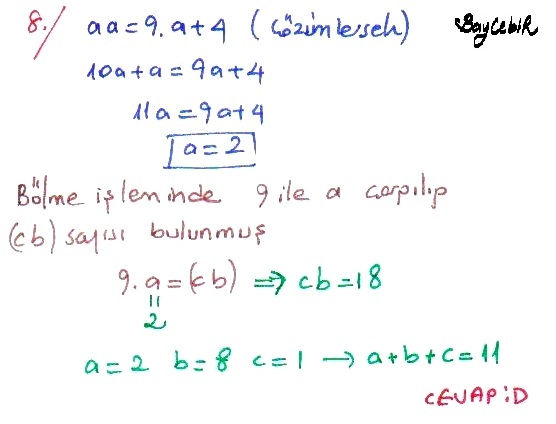 8./ aa = 9.a+4 (çözümlersek) BayCebiR
10a+a = 9a+4
11a = 9a+4
a = 2
Bölme işleminde 9 ile a çarpılıp
(cb) sayısı bulunmuş
9.a = (cb) ⇒ cb = 18
=
2
a = 2 b = 8 c = 1 → a+b+c = 11
CEVAP: D